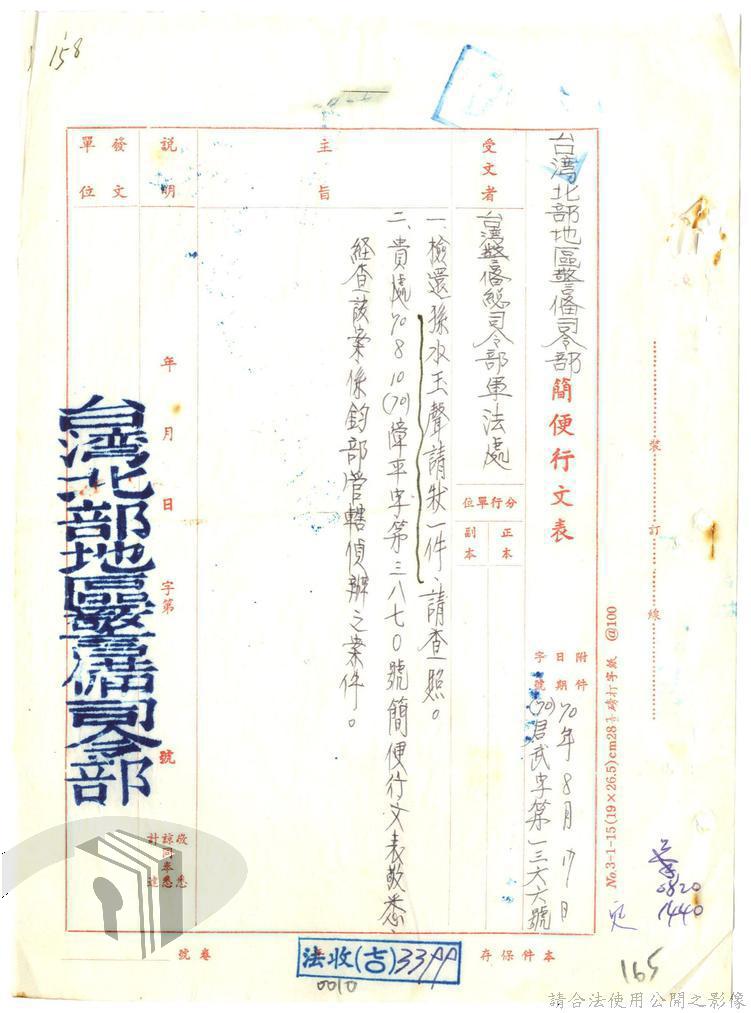 158
台湾北部地區警备司令部 簡便行文表
受文者
台湾警备總司令部軍法處
分行單位
正本
副本
附件
日期 70年8月17日
字號 (70)君武字第一三六六號
主旨
一、檢還孫水玉聲請狀一件、請查照。
二、貴處70 8 10(70)障平字第三八七〇號簡便行文表敬悉
経查該案係鈞部管轄偵辦之案件。
說明
發文單位
年 月 日 字第 號
台湾北部地區警备司令部
裝 訂 線
No.3-1-15(19×26.5)cm28 磅打字紙 @100
0820
1440
本件保存
卷號
法收(吉)3399
0010
165
請合法使用公開之影像